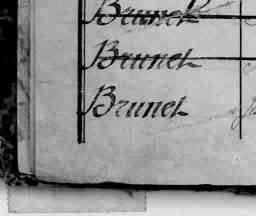 Brunet
Brunet
Brunet